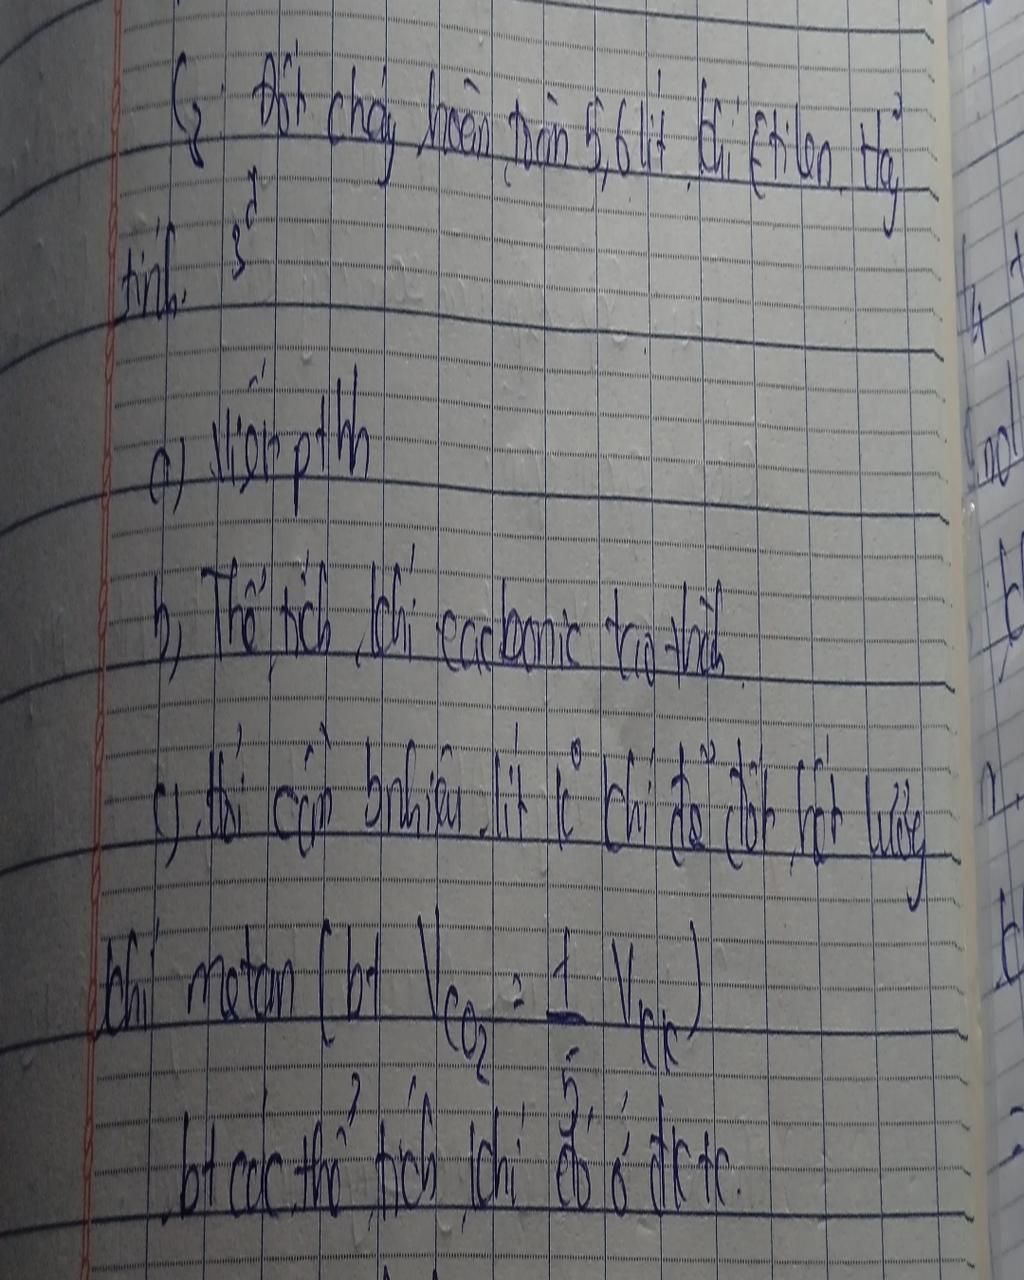 C2: Đốt cháy hoàn toàn 5,6 lít khí Etilen. Hãy
tính. 3đ
a) Viết pthh
b, Thể tích khí cacbonic tạo thành
c), thì cần bnhiêu lít k° khí để đốt hết lượng
khí metan (bt VCO2 = 1/5 Vkk)
bt các thể tích khí đo ở đktc.